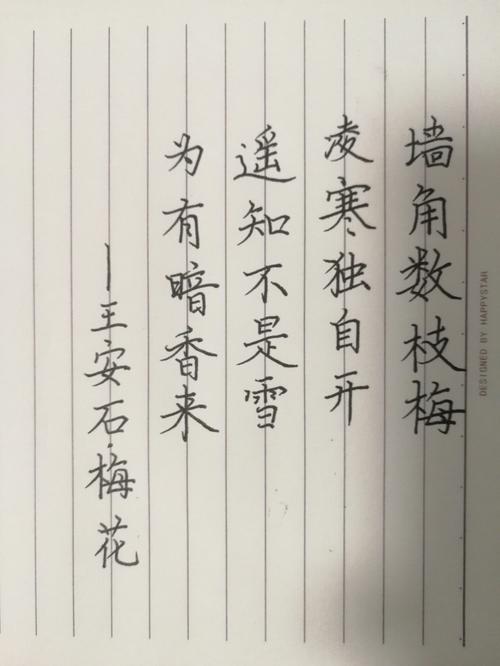 墙角数枝梅
凌寒独自开
遥知不是雪
为有暗香来
—王安石·梅花
DESIGNED BY HAPPYSTAR